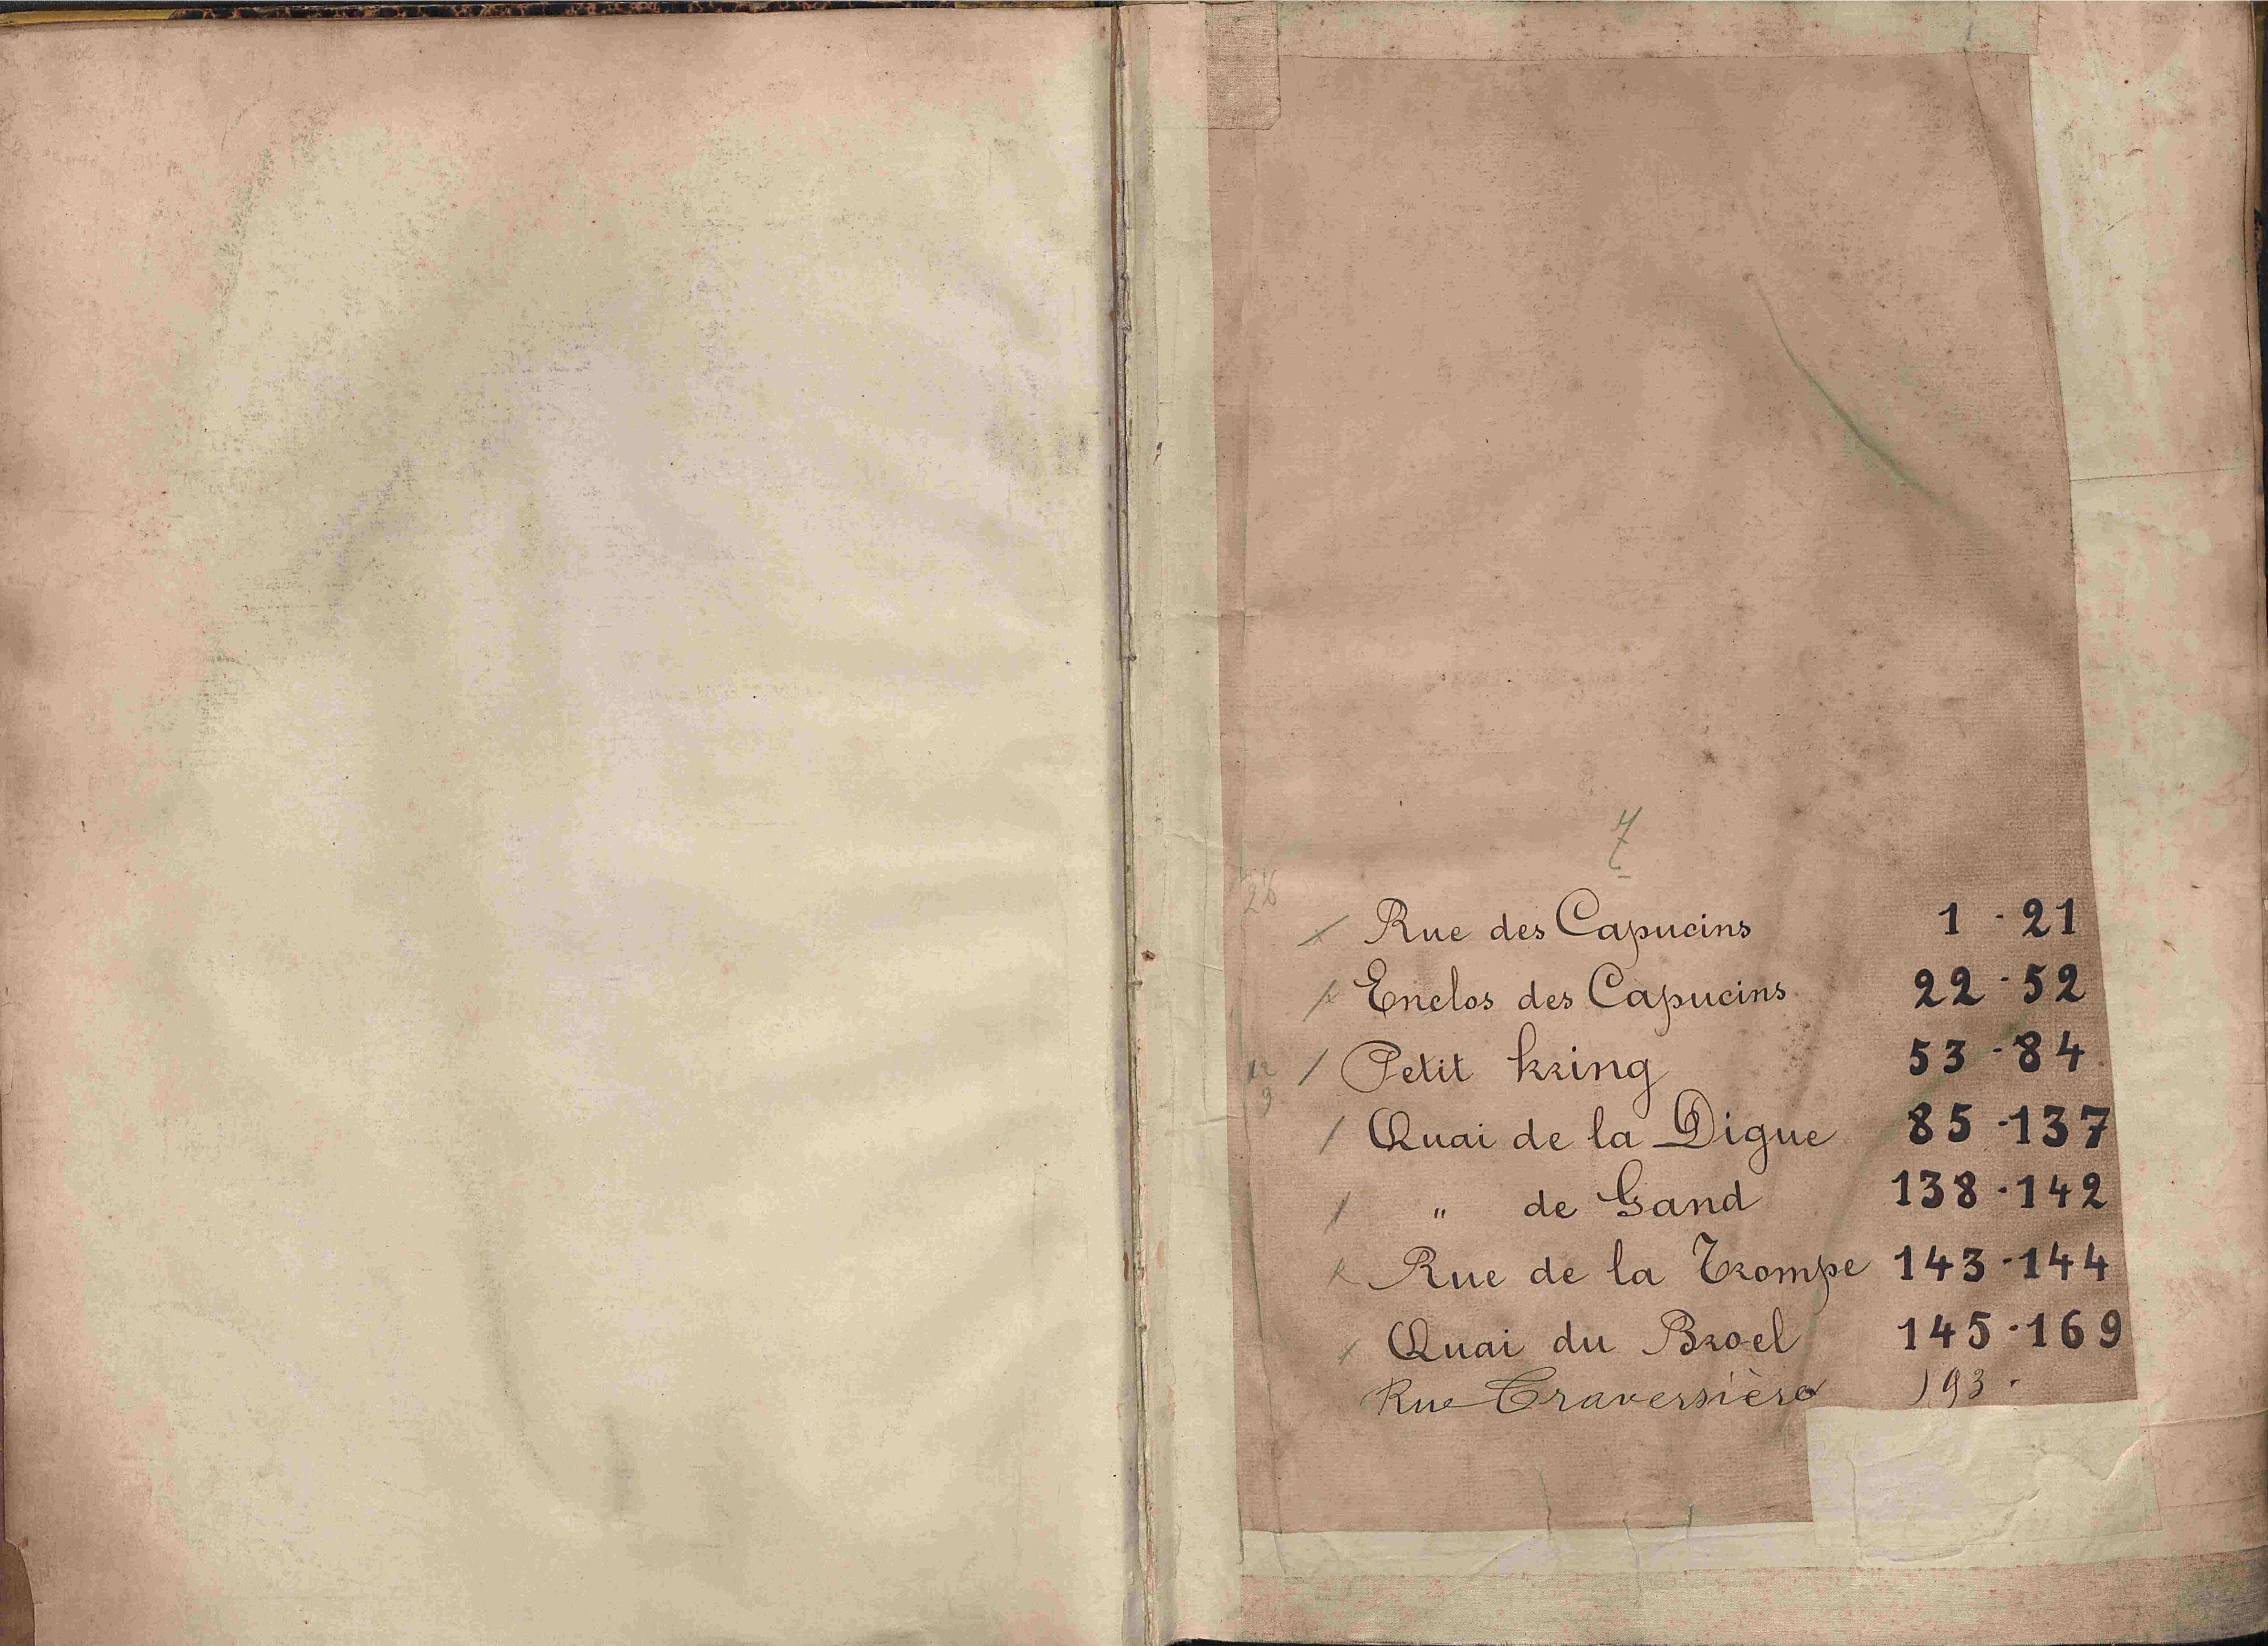 7
26
Rue des Capucins 1 - 21
Enclos des Capucins 22 - 52
Petit kring 53 - 84
12
9
Quai de la Digue 85 - 137
" de Gand 138 - 142
Rue de la Trompe 143 - 144
Quai du Broel 145 - 169
Rue Traversière 193 -